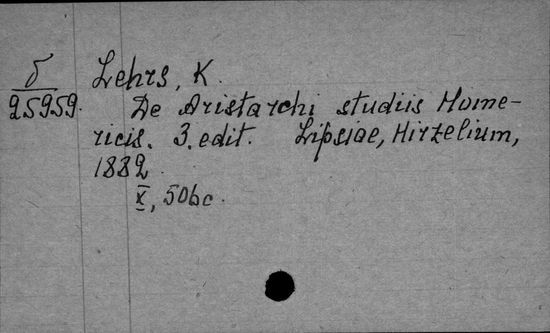 б Lehrs, K.
25959. De Aristarchi studiis Home-
ricis. 3. edit. Lipsiae, Hirzelium,
1882
X, 506 c.